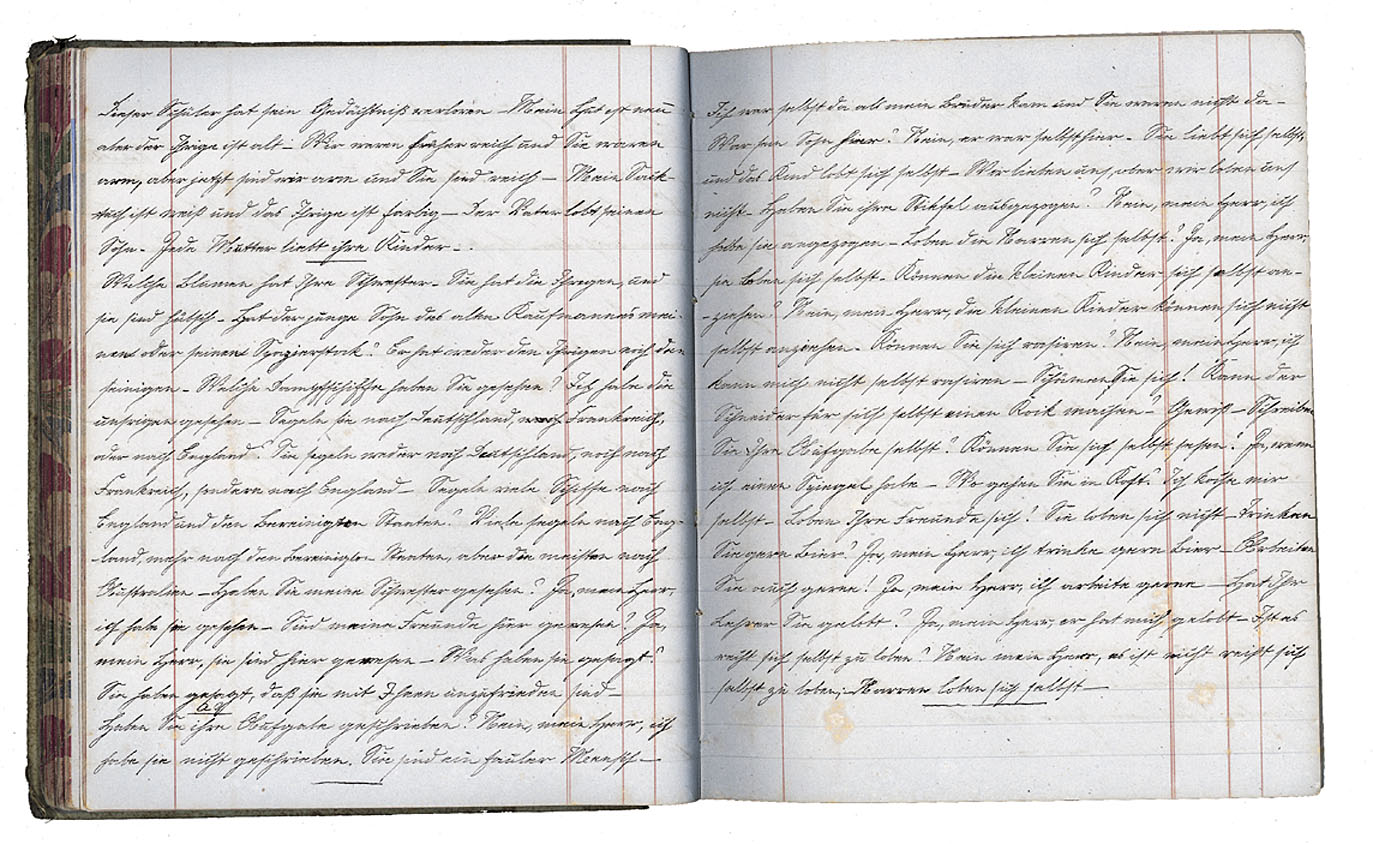 Dieser Schüler hat sein Gedächtniß verloren – Mein Hut ist neu
aber der Ihrige ist alt – Wir waren früher reich und Sie waren
arm, aber jetzt sind wir arm und Sie sind reich – Mein Sack-
tuch ist weiß und das Ihrige ist farbig – Der Vater lobt seinen
Sohn – Jede Mutter liebt ihre Kinder –
Welche Blumen hat Ihre Schwester – Sie hat die Ihrigen, und
sie sind hübsch – Hat der junge Sohn des alten Kaufmannes mei-
nen oder seinen Spazierstock? Er hat weder den Ihrigen noch den
seinigen – Welche Dampfschiffe haben Sie gesehen? Ich habe die
unsrigen gesehen – Segeln sie nach Deutschland, nach Frankreich,
oder nach England? Sie segeln weder nach Deutschland, noch nach
Frankreich, sondern nach England – Segeln viele Schiffe nach
England und den Vereinigten Staaten? Viele segeln nach Eng-
-land, mehr nach den Vereinigten Staaten, aber die meisten nach
Australien – Haben Sie meine Schwester gesehen? Ja, mein Herr,
ich habe sie gesehen – Sind meine Freunde hier gewesen? Ja,
mein Herr, sie sind hier gewesen – Was haben sie gesagt?
Sie haben gesagt, daß sie mit Ihnen unzufrieden sind –
Haben Sie ihre Aufgabe geschrieben? Nein, mein Herr, ich
habe sie nicht geschrieben. Sie sind ein fauler Mensch –
Ich war selbst da als mein Bruder kam und Sie waren nicht da –
War sein Sohn hier? Nein, er war selbst hier – Sie liebt sich selbst,
und das Kind lobt sich selbst – Wir lieben uns, aber wir loben uns
nicht – Haben Sie ihre Stiefel ausgezogen? Nein, mein Herr, ich
habe sie angezogen – Loben die Narren sich selbst? Ja, mein Herr,
sie loben sich selbst – Können die kleinen Kinder sich selbst an-
-ziehen? Nein, mein Herr, die kleinen Kinder können sich nicht
selbst anziehen – Können Sie sich rasiren? Nein, mein Herr, ich
kann mich nicht selbst rasiren – Schämen Sie sich! Kann der
Schneider für sich selbst einen Rock machen –? Gewiß – Schreiben
Sie Ihre Aufgabe selbst? Können Sie sich selbst sehen? Ja, wenn
ich einen Spiegel habe – Wo gehen Sie in Kost? Ich koche mir
selbst – Loben Ihre Freunde sich? Sie loben sich nicht – Trinken
Sie gern Bier? Ja, mein Herr, ich trinke gern Bier – Arbeiten
Sie auch gerne? Ja mein Herr, ich arbeite gerne – Hat Ihr
Lehrer Sie gelobt? Ja, mein Herr, er hat mich gelobt – Ist es
recht sich selbst zu loben? Nein mein Herr, es ist nicht recht sich
selbst zu loben; Narren loben sich selbst –